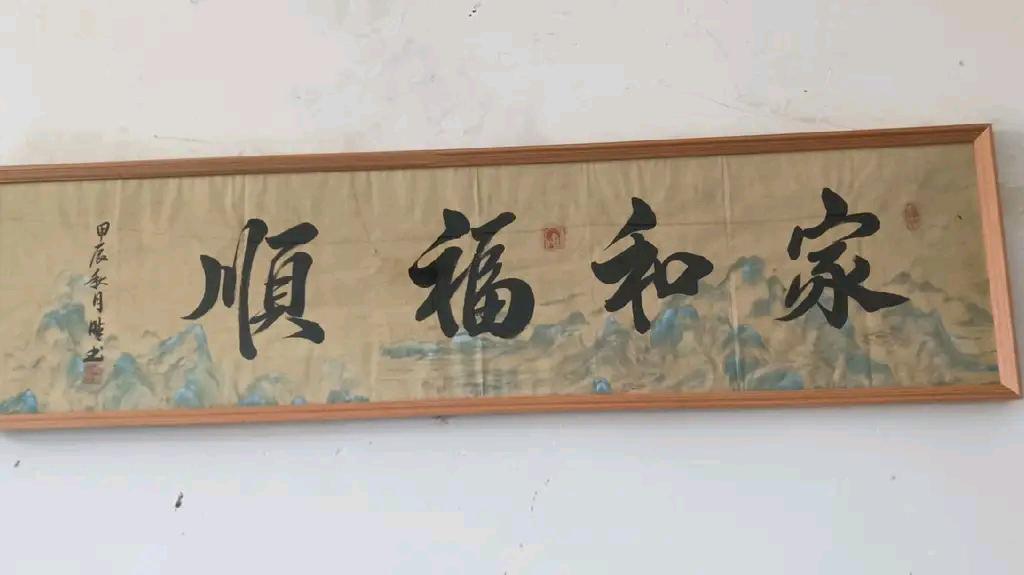 家和福順
甲辰秋月 书